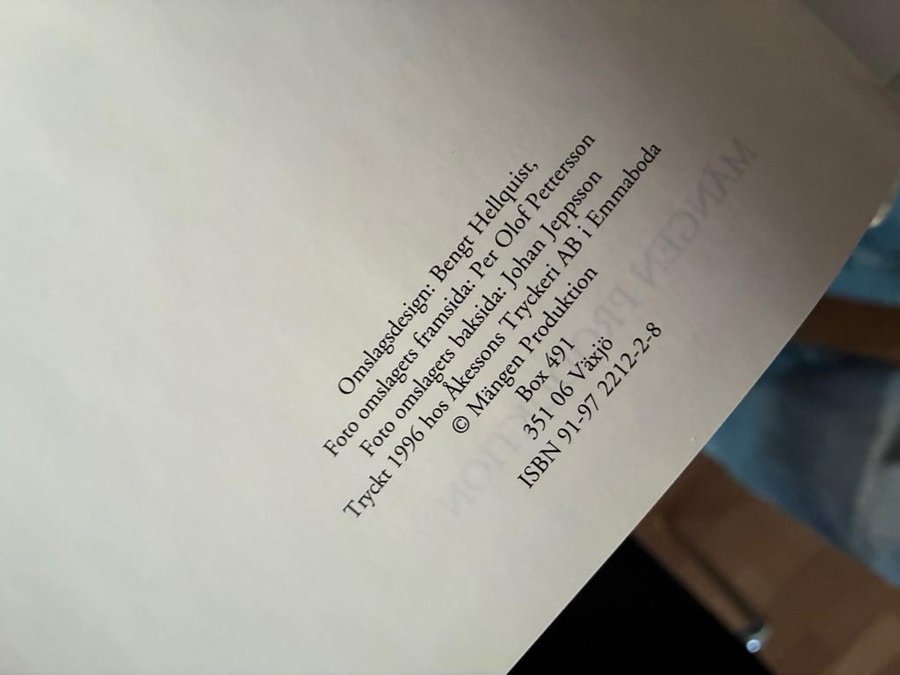 Omslagsdesign: Bengt Hellquist,
Foto omslagets framsida: Per Olof Pettersson
Foto omslagets baksida: Johan Jeppsson
Tryckt 1996 hos Åkessons Tryckeri AB i Emmaboda
© Mängen Produktion
Box 491
351 06 Växjö
ISBN 91-97 2212-2-8
MÄNGEN PRODUKTION